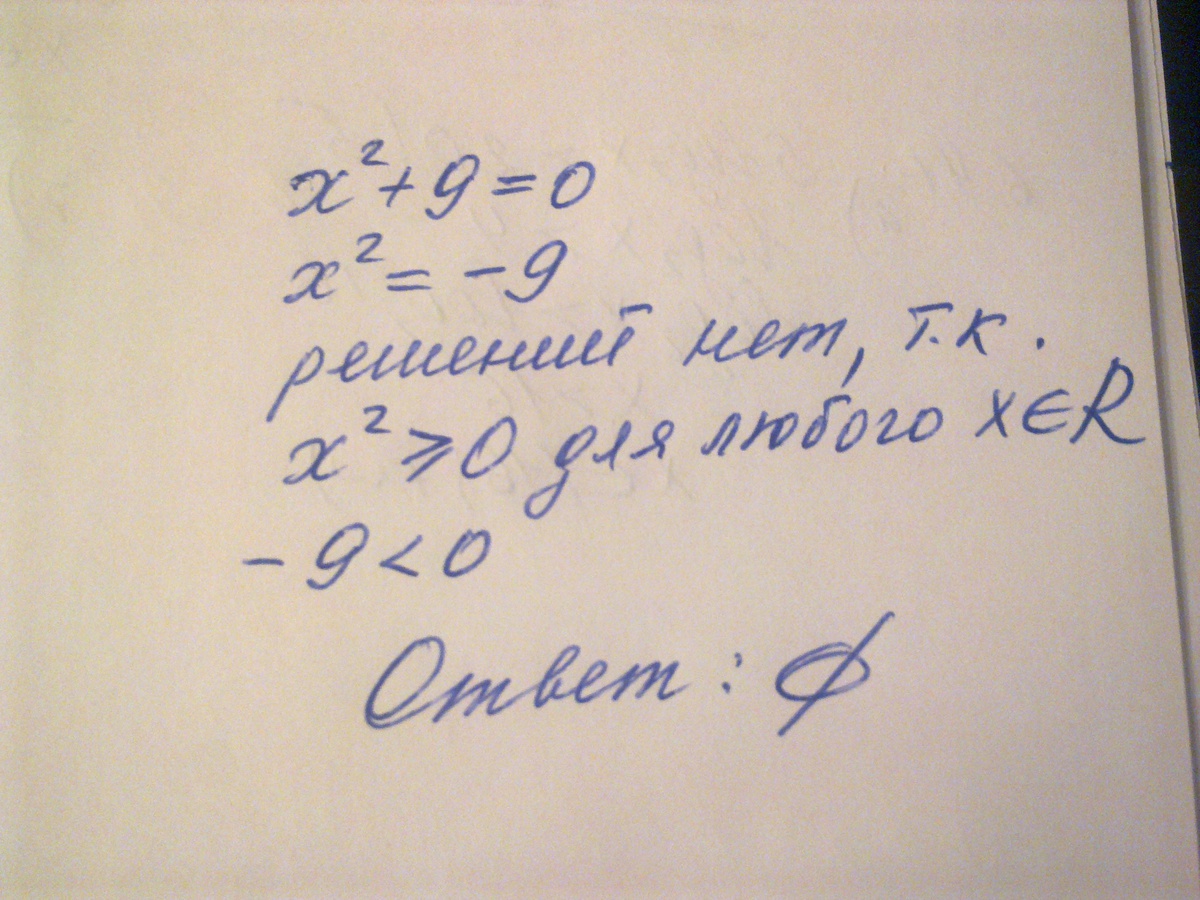 x² + 9 = 0
x² = -9
решений нет, т.к.
x² ⩾ 0 для любого x ∈ R
- 9 < 0
Ответ : ∅